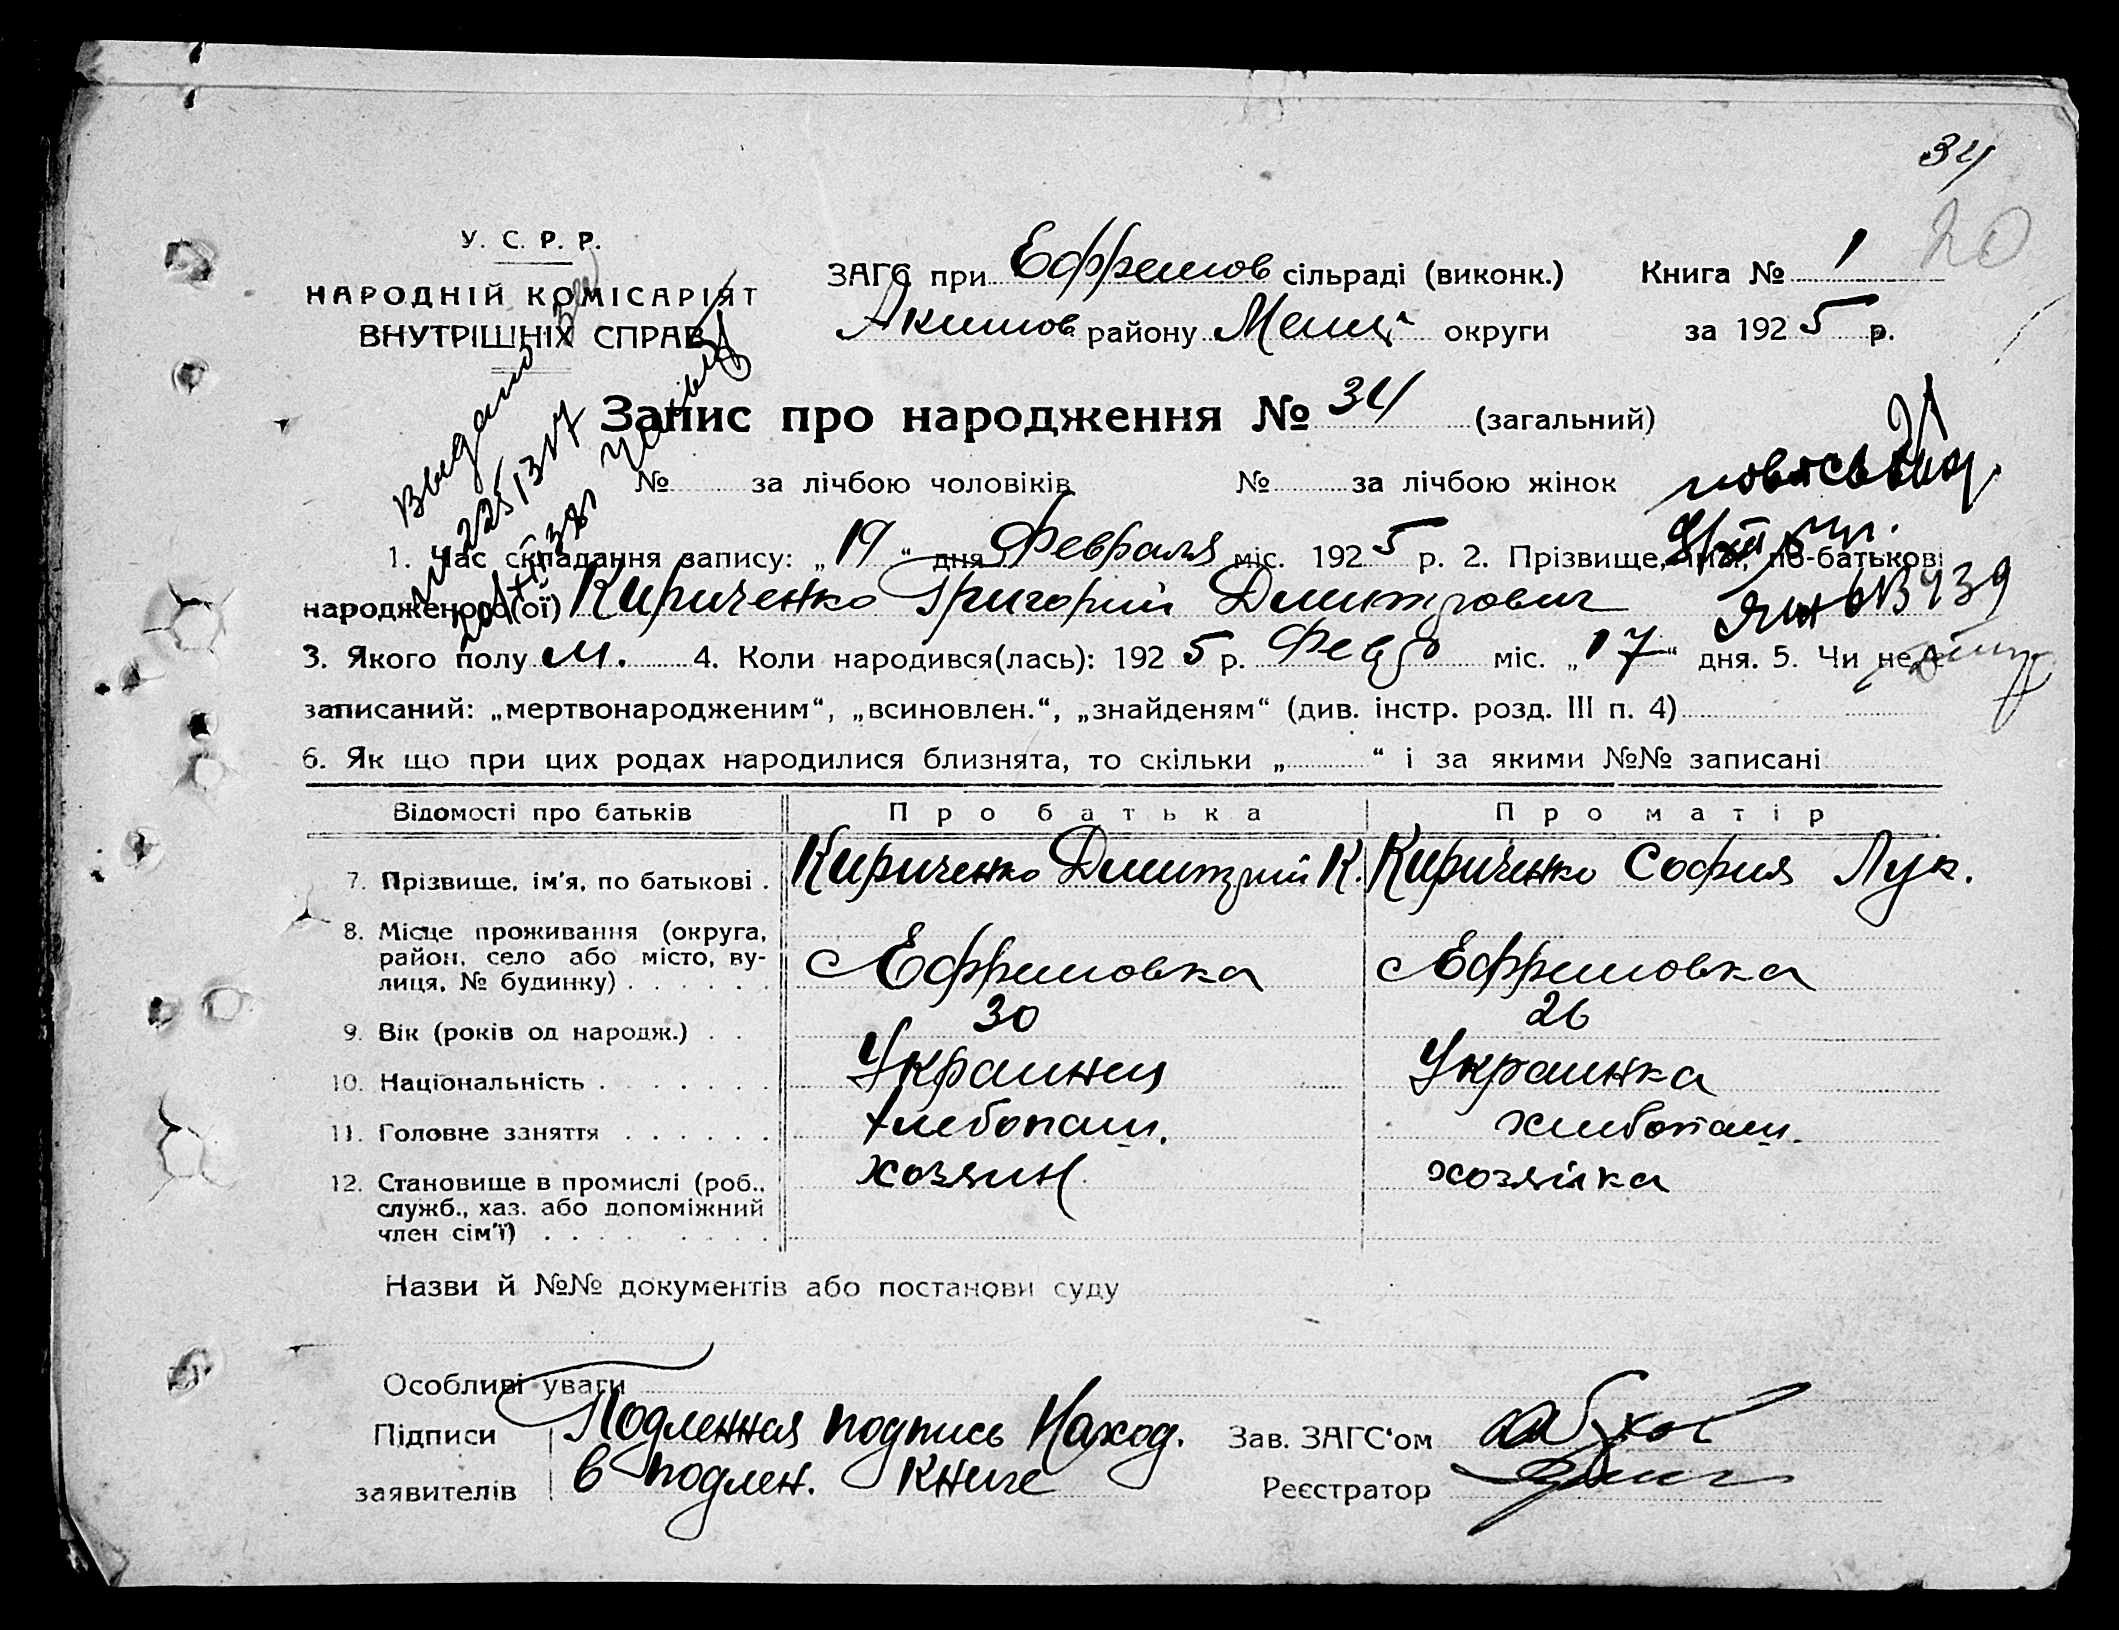 34
20
У. С. Р. Р.
НАРОДНІЙ КОМІСАРІЯТ
ВНУТРІШНІХ СПРАВ
ЗАГС при Ефремов сільраді (виконк.) Книга № 1
Акимов району Мелиț округи за 1925 р.
Выдано
Запис про народження № 34 (загальний)
№ за лічбою чоловіків № за лічбою жінок
1. Час складання запису: „19“ дня Февраля міс. 1925 р. 2. Прізвище, им'я, по-батькові
народженого(ої) Кириченко Григорий Дмитрович
3. Якого полу м. 4. Коли народився(лась): 1925 р. Февр міс. „17“ дня. 5. Чи не є
записаний: „мертвонародженим“, „всиновлен.“, „знайденям“ (див. інстр. розд. III п. 4)
6. Як що при цих родах народилися близнята, то скільки „ “ і за якими №№ записані
Відомості про батьків Про батька Про матір
7. Прізвище, ім'я, по батькові . Кириченко Дмитрий К. Кириченко София Лук.
8. Місце проживання (округа,
район, село або місто, ву-
лиця, № будинку) . . . . . . Ефремовка Ефремовка
9. Вік (років од народж.) . . 30 26
10. Національність . . . . . . . Украинец Украинка
11. Головне заняття . . . . . . хлебопаш. хлебопаш.
12. Становище в промислі (роб.,
служб., хаз. або допоміжний
член сім'ї) . . . . . . . . хозяин хозяйка
Назви й №№ документів або постанови суду
Особливі уваги
Підписи Подленная подпись Наход. Зав. ЗАГС'ом
заявителів в подлен. книге Реєстратор